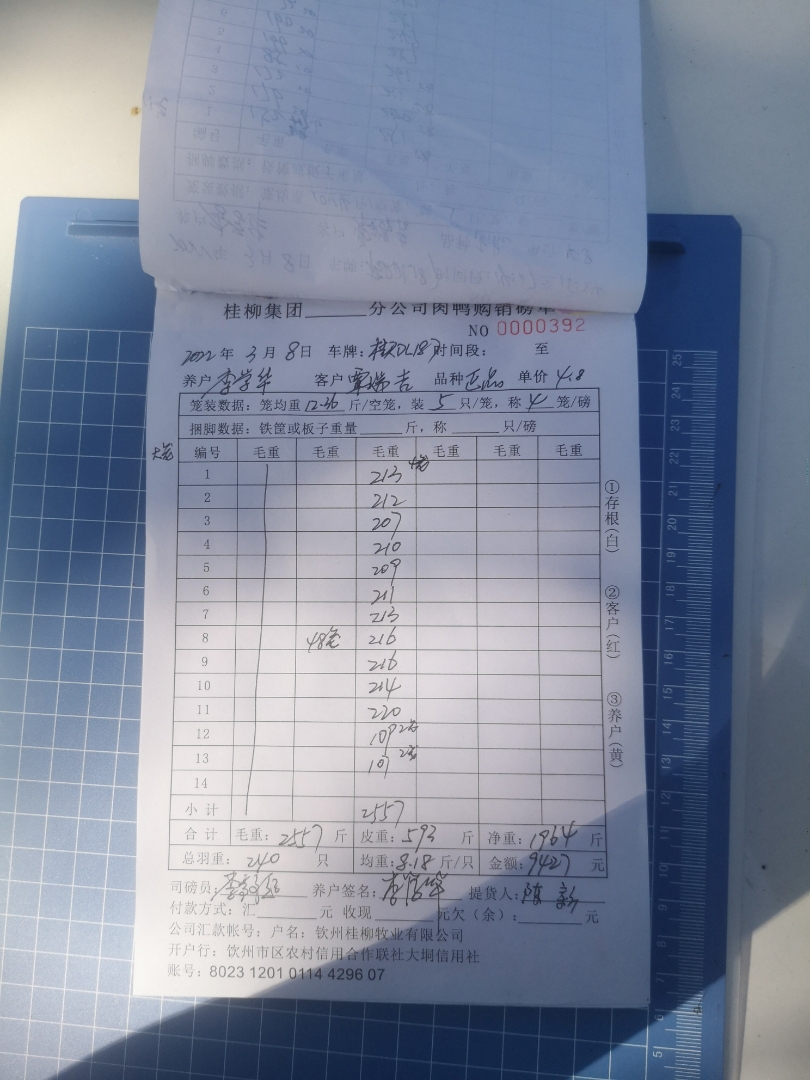 桂柳集团______分公司肉鸭购销磅单
NO 0000392
2022年 3月 8日 车牌: 时间段: 至
养户 李学华 客户 覃瑞吉 品种 正品 单价 4.8
笼装数据：笼均重 12.36 斤/空笼，装 5 只/笼，称 4 笼/磅
捆脚数据：铁筐或板子重量______斤，称______只/磅
编号 毛重 毛重 毛重 毛重 毛重 毛重
1 213 4笼
2 212
3 207
4 210
5 209
6 211
7 213
8 48笼 216
9 216
10 214
11 220
12 109 2笼
13 107 2笼
14
小计 2557
合计 毛重：2557 斤 皮重：593 斤 净重：1964 斤
总羽重：240 只 均重：8.18 斤/只 金额：9427 元
司磅员： 养户签名：李学华 提货人：
付款方式：汇______元 收现______元欠（余）：______元
公司汇款帐号：户名：钦州桂柳牧业有限公司
开户行：钦州市区农村信用合作联社大垌信用社
账号：8023 1201 0114 4296 07
①存根（白）
②客户（红）
③养户（黄）
25
24
23
22
21
20
19
18
17
16
15
14
13
12
11
10
9
8
7
6
5